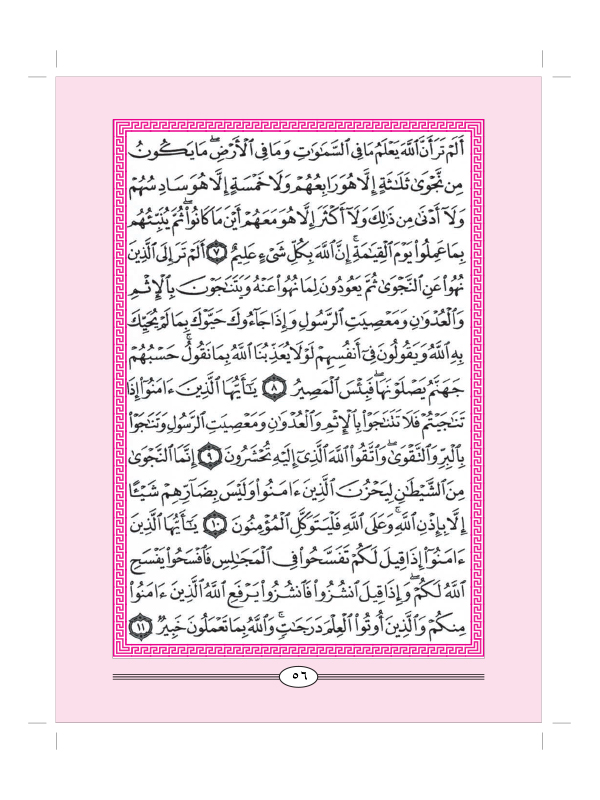 أَلَمْ تَرَ أَنَّ ٱللَّهَ يَعْلَمُ مَا فِى ٱلسَّمَٰوَٰتِ وَمَا فِى ٱلْأَرْضِ ۖ مَا يَكُونُ
مِن نَّجْوَىٰ ثَلَٰثَةٍ إِلَّا هُوَ رَابِعُهُمْ وَلَا خَمْسَةٍ إِلَّا هُوَ سَادِسُهُمْ
وَلَآ أَدْنَىٰ مِن ذَٰلِكَ وَلَآ أَكْثَرَ إِلَّا هُوَ مَعَهُمْ أَيْنَ مَا كَانُوا۟ ۖ ثُمَّ يُنَبِّئُهُم
بِمَا عَمِلُوا۟ يَوْمَ ٱلْقِيَٰمَةِ ۚ إِنَّ ٱللَّهَ بِكُلِّ شَىْءٍ عَلِيمٌ ٧ أَلَمْ تَرَ إِلَى ٱلَّذِينَ
نُهُوا۟ عَنِ ٱلنَّجْوَىٰ ثُمَّ يَعُودُونَ لِمَا نُهُوا۟ عَنْهُ وَيَتَنَٰجَوْنَ بِٱلْإِثْمِ
وَٱلْعُدْوَٰنِ وَمَعْصِيَتِ ٱلرَّسُولِ وَإِذَا جَآءُوكَ حَيَّوْكَ بِمَا لَمْ يُحَيِّكَ
بِهِ ٱللَّهُ وَيَقُولُونَ فِىٓ أَنفُسِهِمْ لَوْلَا يُعَذِّبُنَا ٱللَّهُ بِمَا نَقُولُ ۚ حَسْبُهُمْ
جَهَنَّمُ يَصْلَوْنَهَا ۖ فَبِئْسَ ٱلْمَصِيرُ ٨ يَٰٓأَيُّهَا ٱلَّذِينَ ءَامَنُوٓا۟ إِذَا
تَنَٰجَيْتُمْ فَلَا تَتَنَٰجَوْا۟ بِٱلْإِثْمِ وَٱلْعُدْوَٰنِ وَمَعْصِيَتِ ٱلرَّسُولِ وَتَنَٰجَوْا۟
بِٱلْبِرِّ وَٱلتَّقْوَىٰ ۖ وَٱتَّقُوا۟ ٱللَّهَ ٱلَّذِىٓ إِلَيْهِ تُحْشَرُونَ ٩ إِنَّمَا ٱلنَّجْوَىٰ
مِنَ ٱلشَّيْطَٰنِ لِيَحْزُنَ ٱلَّذِينَ ءَامَنُوا۟ وَلَيْسَ بِضَآرِّهِمْ شَيْـًٔا
إِلَّا بِإِذْنِ ٱللَّهِ ۚ وَعَلَى ٱللَّهِ فَلْيَتَوَكَّلِ ٱلْمُؤْمِنُونَ ١٠ يَٰٓأَيُّهَا ٱلَّذِينَ
ءَامَنُوٓا۟ إِذَا قِيلَ لَكُمْ تَفَسَّحُوا۟ فِى ٱلْمَجَٰلِسِ فَٱفْسَحُوا۟ يَفْسَحِ
ٱللَّهُ لَكُمْ ۖ وَإِذَا قِيلَ ٱنشُزُوا۟ فَٱنشُزُوا۟ يَرْفَعِ ٱللَّهُ ٱلَّذِينَ ءَامَنُوا۟
مِنكُمْ وَٱلَّذِينَ أُوتُوا۟ ٱلْعِلْمَ دَرَجَٰتٍ ۚ وَٱللَّهُ بِمَا تَعْمَلُونَ خَبِيرٌ ١١
٥٦